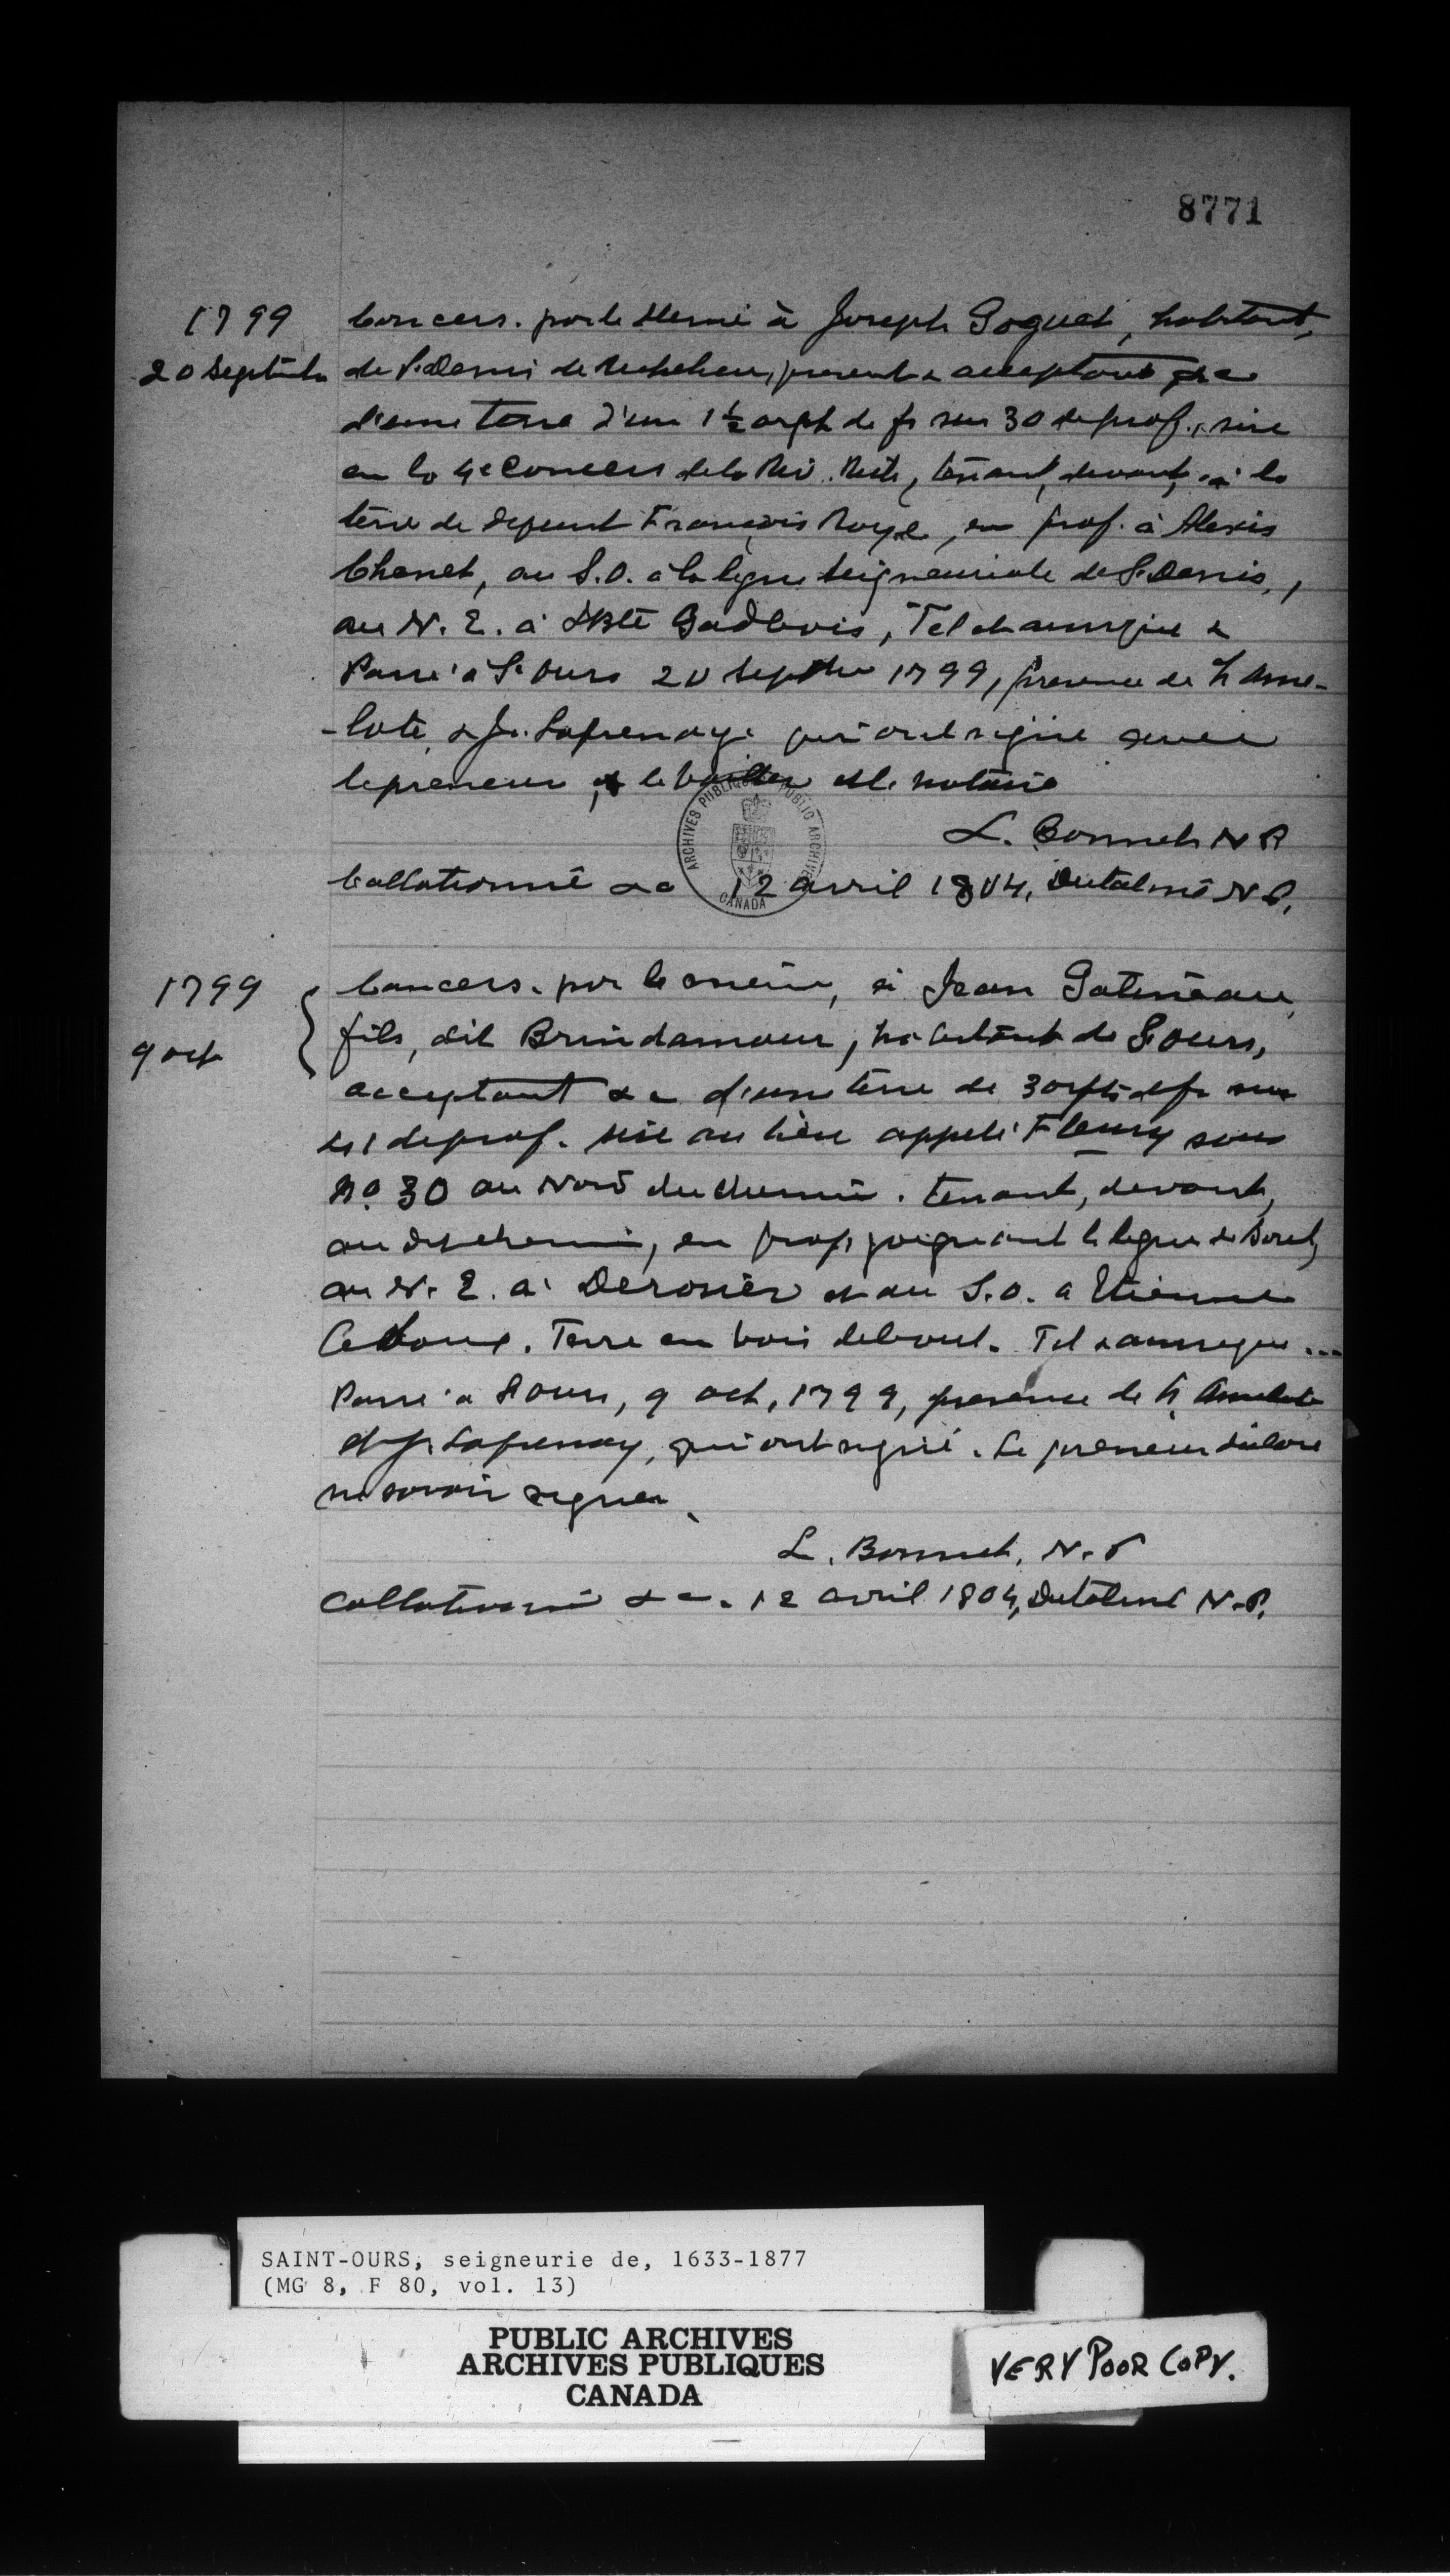 8771
1799
20 Septembre
Concess. par le Meme à Joseph Goguet, habitant,
de St Denis de Richelieu, present & acceptant &c
d'une terre d'un 1 ½ arpt de ft sur 30 de prof., sise
en la 4e Concess de la Riv. , tenant, devant, à la
terre de defunt François Roye, en prof. à Alexis
Chenet, au S.O. à la ligne Seigneuriale de St Denis,
au N. E. à JBte Gadbois, Tel et ainsi que &
Passé à St Ours 20 Septbre 1799, presence de h Ame-
-lote, & Js. Lafrenaye qui ont signé avec
le preneur, & le bailleur et le notaire
L. Bonnet N P
Collationné &c 12 avril 1804, Dutalmé N P.
1799
9 oct
Concess. par le même, à Jean Gatineau,
fils, dit Brindamour, habitant de St Ours,
acceptant &c d'une terre de 3 arpts de ft sur
21 de prof. sise au lieu appelé Fleury sous
No. 30 au Nord du chemin. tenant, devant,
au dit chemin, en prof. joignant la ligne de Sorel,
au N. E. à Derosier et au S.O. a Etienne
Ledoux. Terre en bois debout. Tel & ainsi que ...
Passé à St Ours, 9 oct, 1799, presence de h. Amelote
et Js. Lafrenay, qui ont signé. Le preneur declare
ne savoir signer.
L. Bonnet, N.P
Collationné &c. 12 avril 1804, Dutalmé N.P.
ARCHIVES PUBLIQUES PUBLIC ARCHIVES
CANADA
SAINT-OURS, seigneurie de, 1633-1877
(MG 8, F 80, vol. 13)
PUBLIC ARCHIVES
ARCHIVES PUBLIQUES
CANADA
VERY POOR COPY.